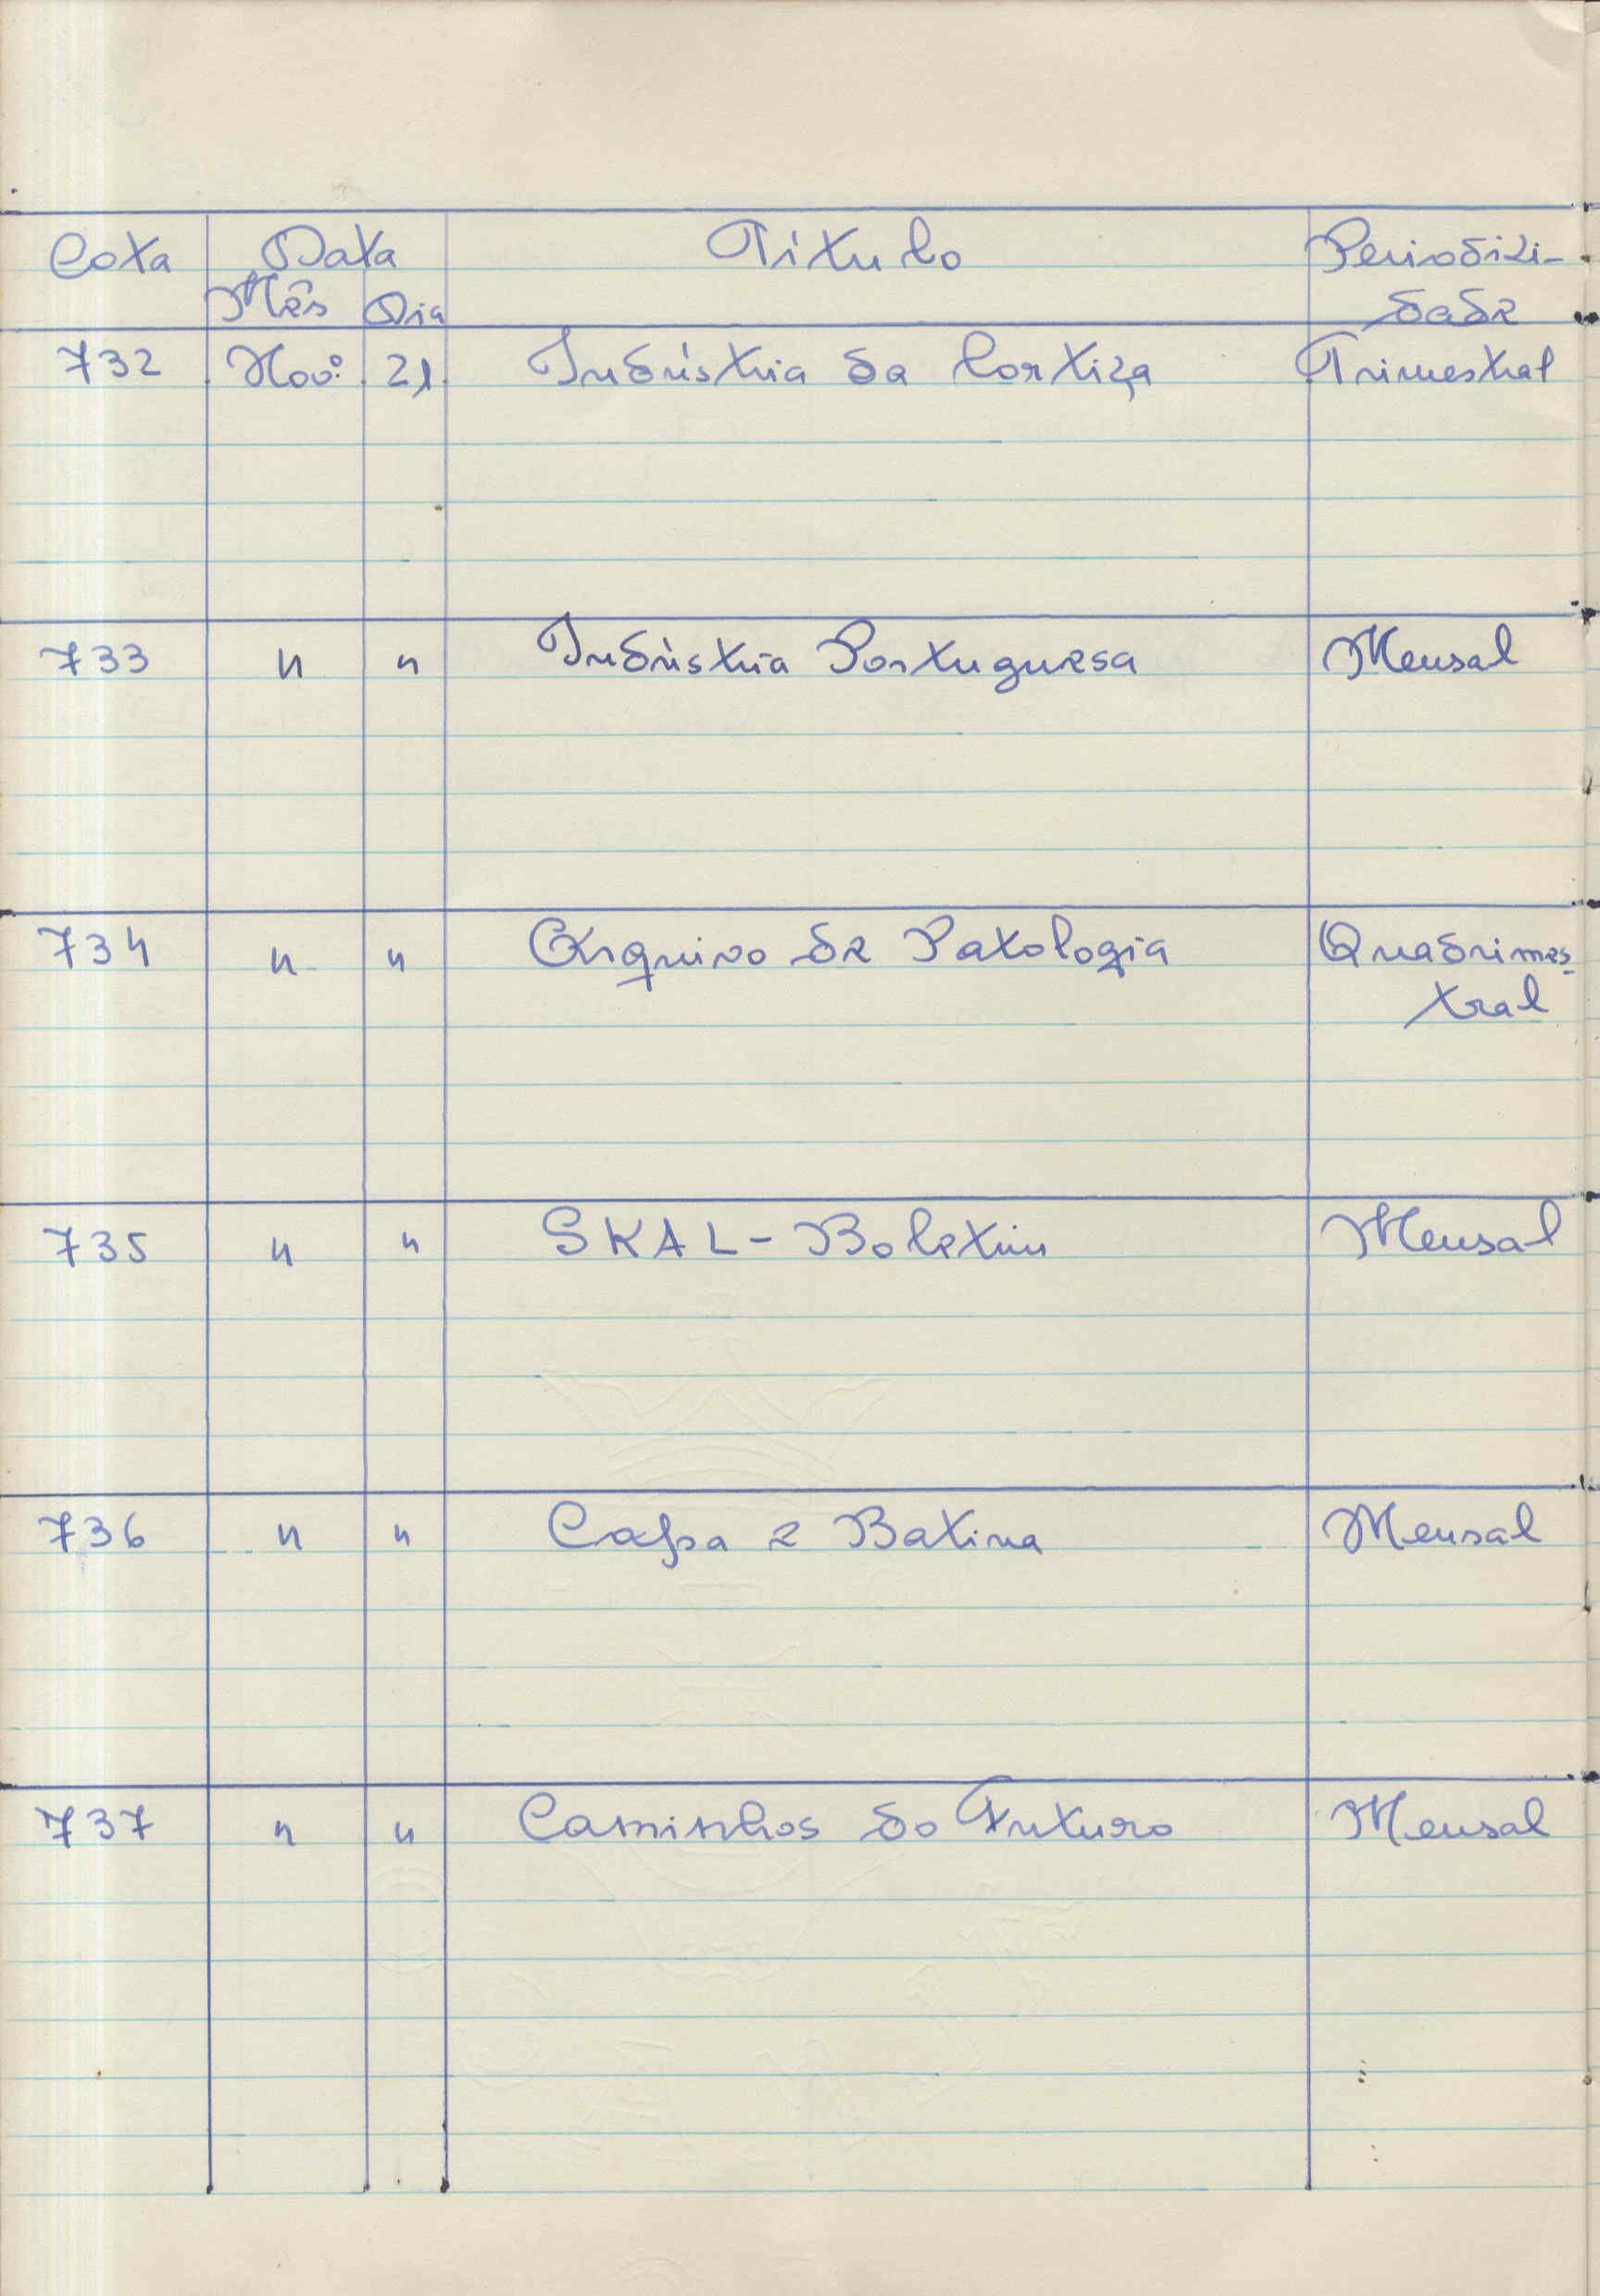 Cota Data Título Periodici-
Mês Dia dade
732 Nov.º 21 Indústria da Cortiça Trimestral
733 " " Indústria Portuguesa Mensal
734 " " Arquivo de Patologia Quadrimes-
tral
735 " " SKAL - Boletim Mensal
736 " " Capa e Batina Mensal
737 " " Caminhos do Futuro Mensal